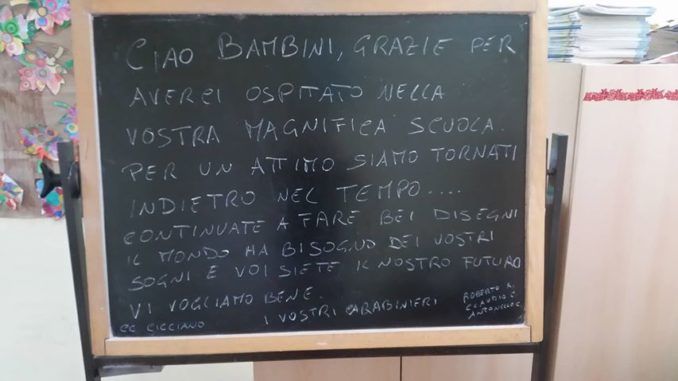 CIAO BAMBINI, GRAZIE PER
AVERCI OSPITATO NELLA
VOSTRA MAGNIFICA SCUOLA.
PER UN ATTIMO SIAMO TORNATI
INDIETRO NEL TEMPO....
CONTINUATE A FARE BEI DISEGNI
IL MONDO HA BISOGNO DEI VOSTRI
SOGNI E VOI SIETE IL NOSTRO FUTURO
VI VOGLIAMO BENE.
I VOSTRI CARABINIERI
CC CICCIANO
ROBERTO A.
CLAUDIO C.
ANTONELLO C.